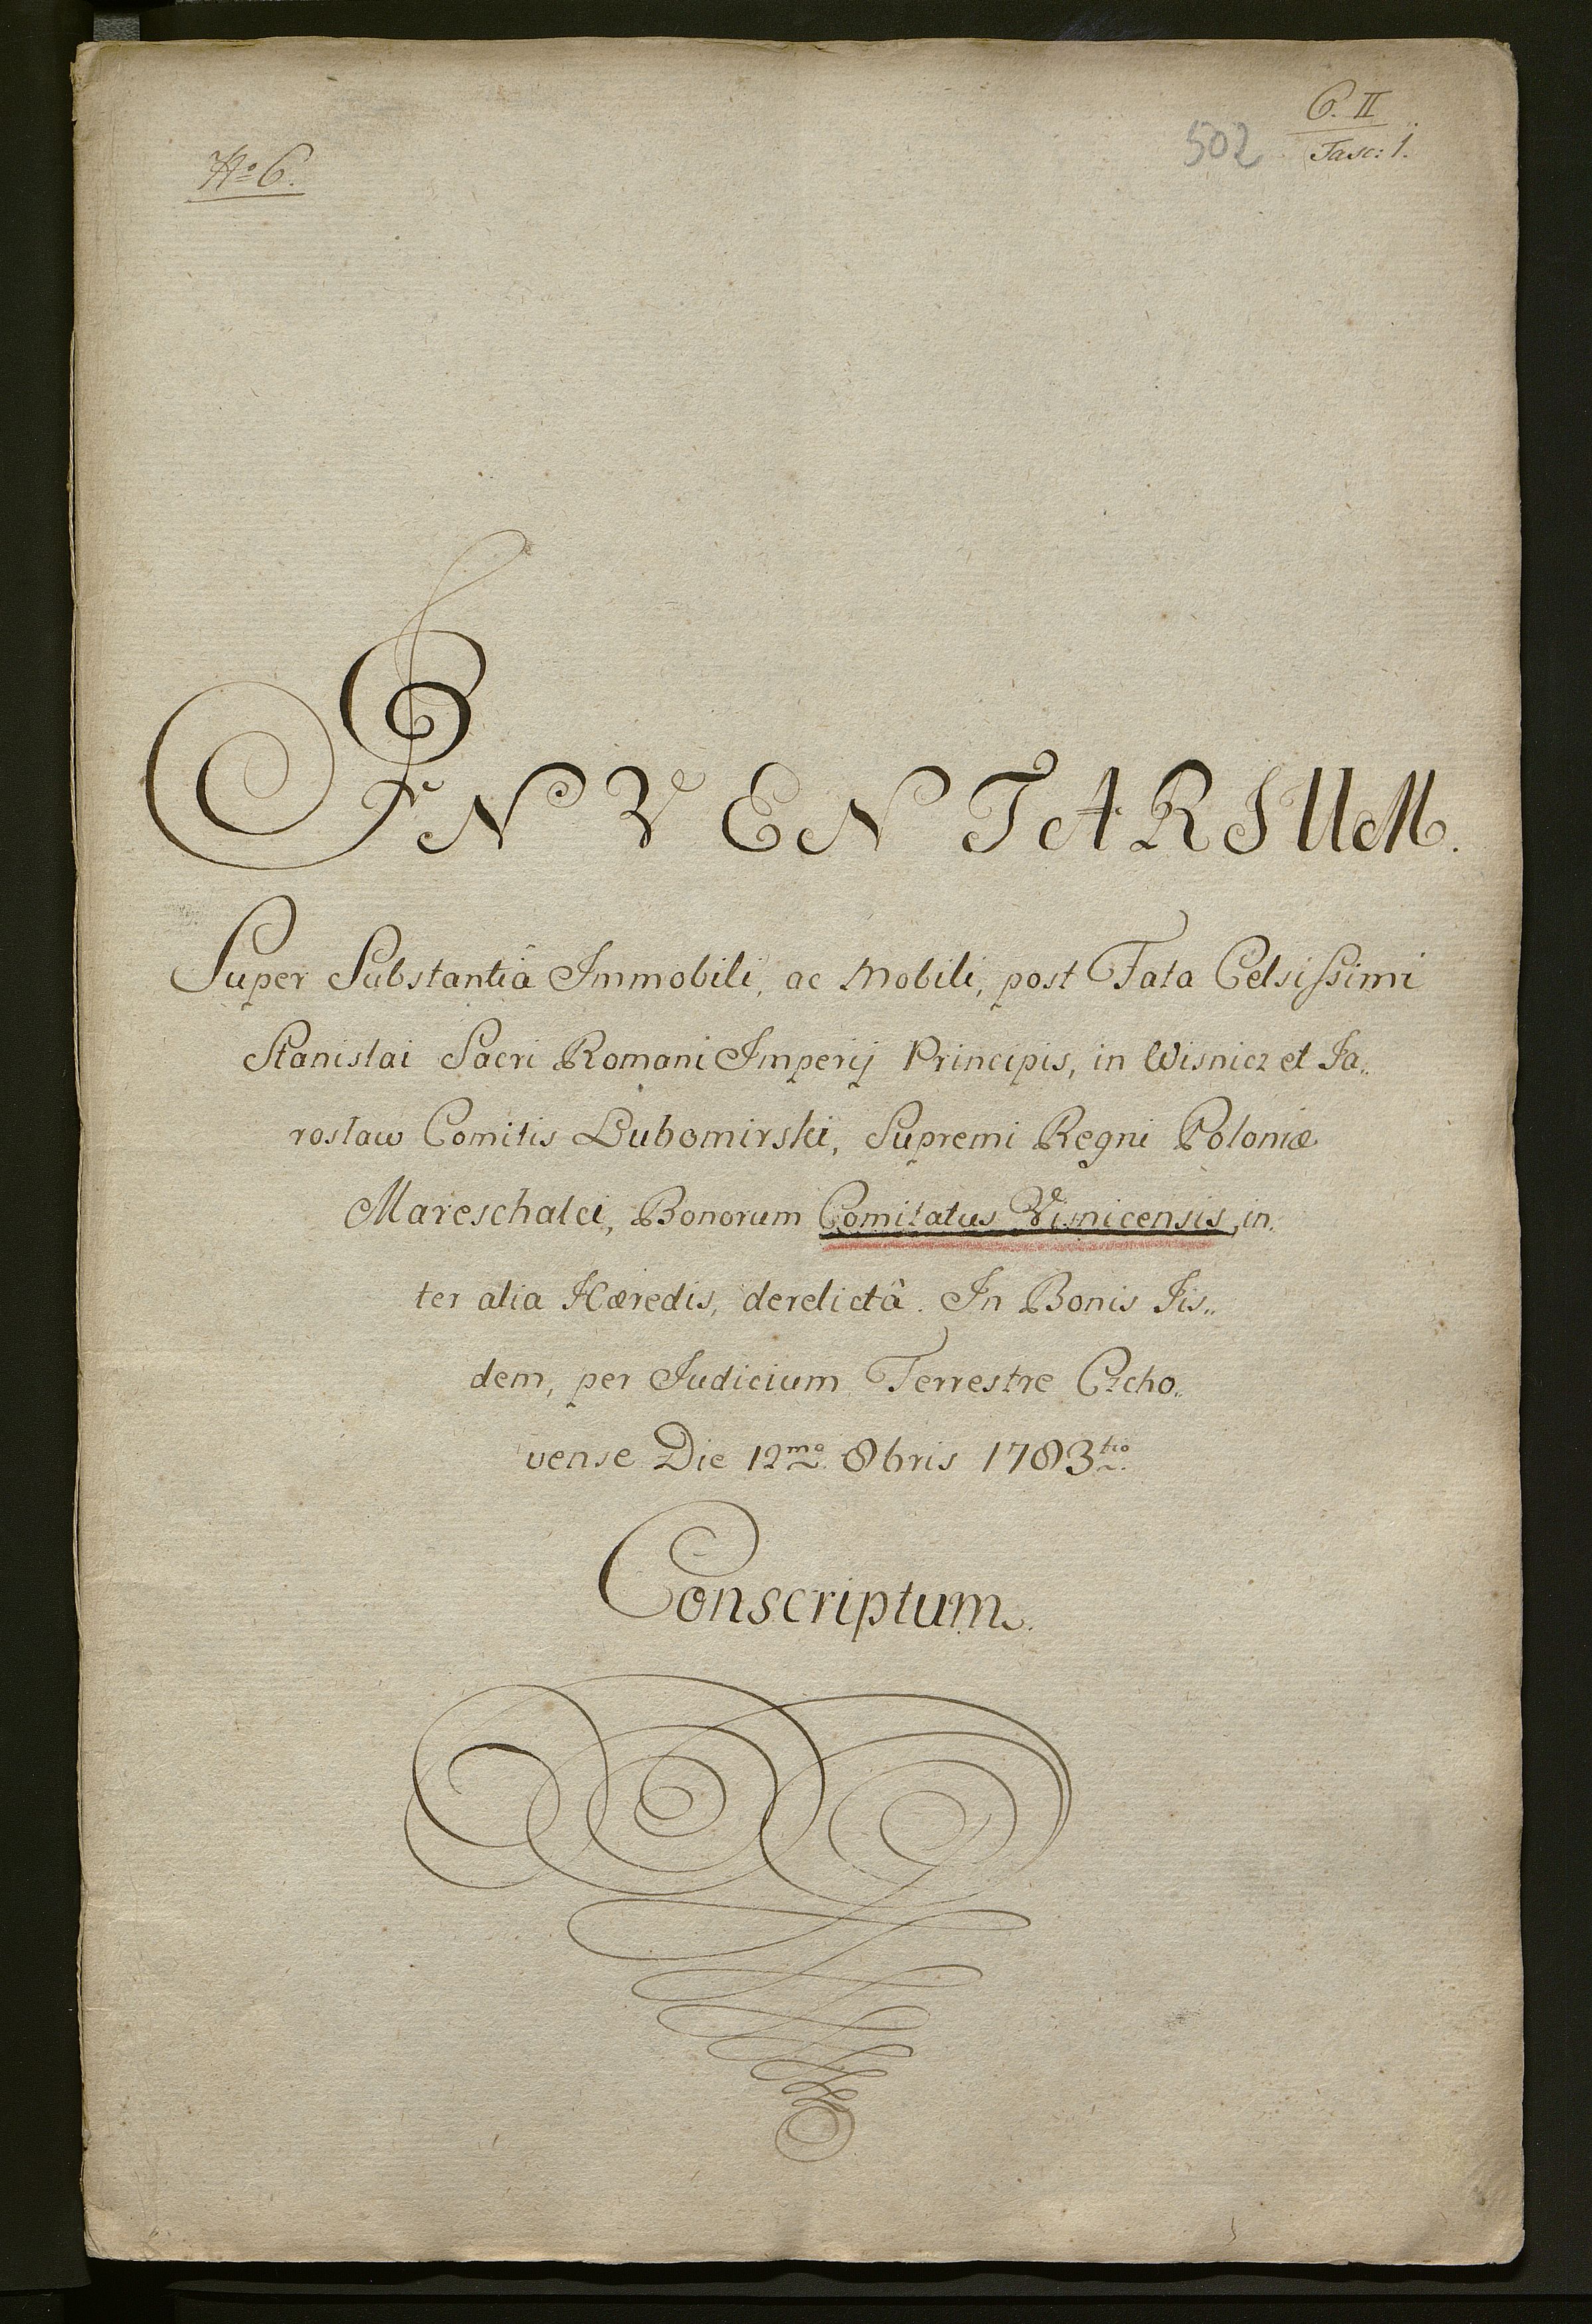 6. II
502 Fasc: 1.
No 6.
INVENTARIUM.
Super Substantiâ Immobili, ac Mobili, post Fata Celsissimi
Stanislai Sacri Romani Imperij Principis, in Wisnicz et Ja„
roslaw Comitis Lubomirski, Supremi Regni Poloniæ
Mareschalci, Bonorum Comitatus Visnicensis, in„
ter alia Hæredis, derelictâ. In Bonis Iis„
dem, per Judicium Terrestre Czcho„
vense Die 12mo 8bris 1783tio
Conscriptum.